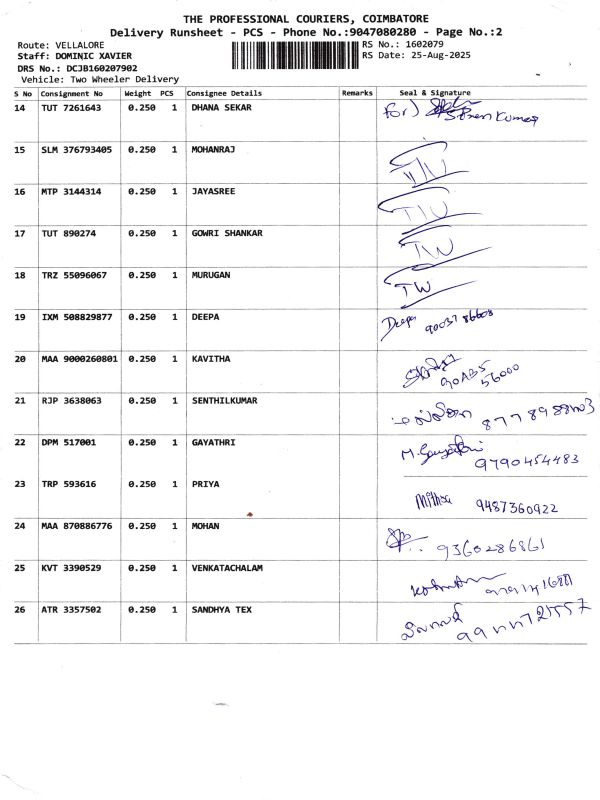 THE PROFESSIONAL COURIERS, COIMBATORE
Delivery Runsheet - PCS - Phone No.:9047080280 - Page No.:2
Route: VELLALORE RS No.: 1602079
Staff: DOMINIC XAVIER RS Date: 25-Aug-2025
DRS No.: DCJB160207902
Vehicle: Two Wheeler Delivery
S No Consignment No Weight PCS Consignee Details Remarks Seal & Signature
14 TUT 7261643 0.250 1 DHANA SEKAR For)
15 SLM 376793405 0.250 1 MOHANRAJ
16 MTP 3144314 0.250 1 JAYASREE
17 TUT 890274 0.250 1 GOWRI SHANKAR TW
18 TRZ 55096067 0.250 1 MURUGAN TW
19 IXM 508829877 0.250 1 DEEPA Deepa
20 MAA 9000260801 0.250 1 KAVITHA
21 RJP 3638063 0.250 1 SENTHILKUMAR
22 DPM 517001 0.250 1 GAYATHRI 9790454483
23 TRP 593616 0.250 1 PRIYA 9487360922
24 MAA 870886776 0.250 1 MOHAN 9360286861
25 KVT 3390529 0.250 1 VENKATACHALAM
26 ATR 3357502 0.250 1 SANDHYA TEX